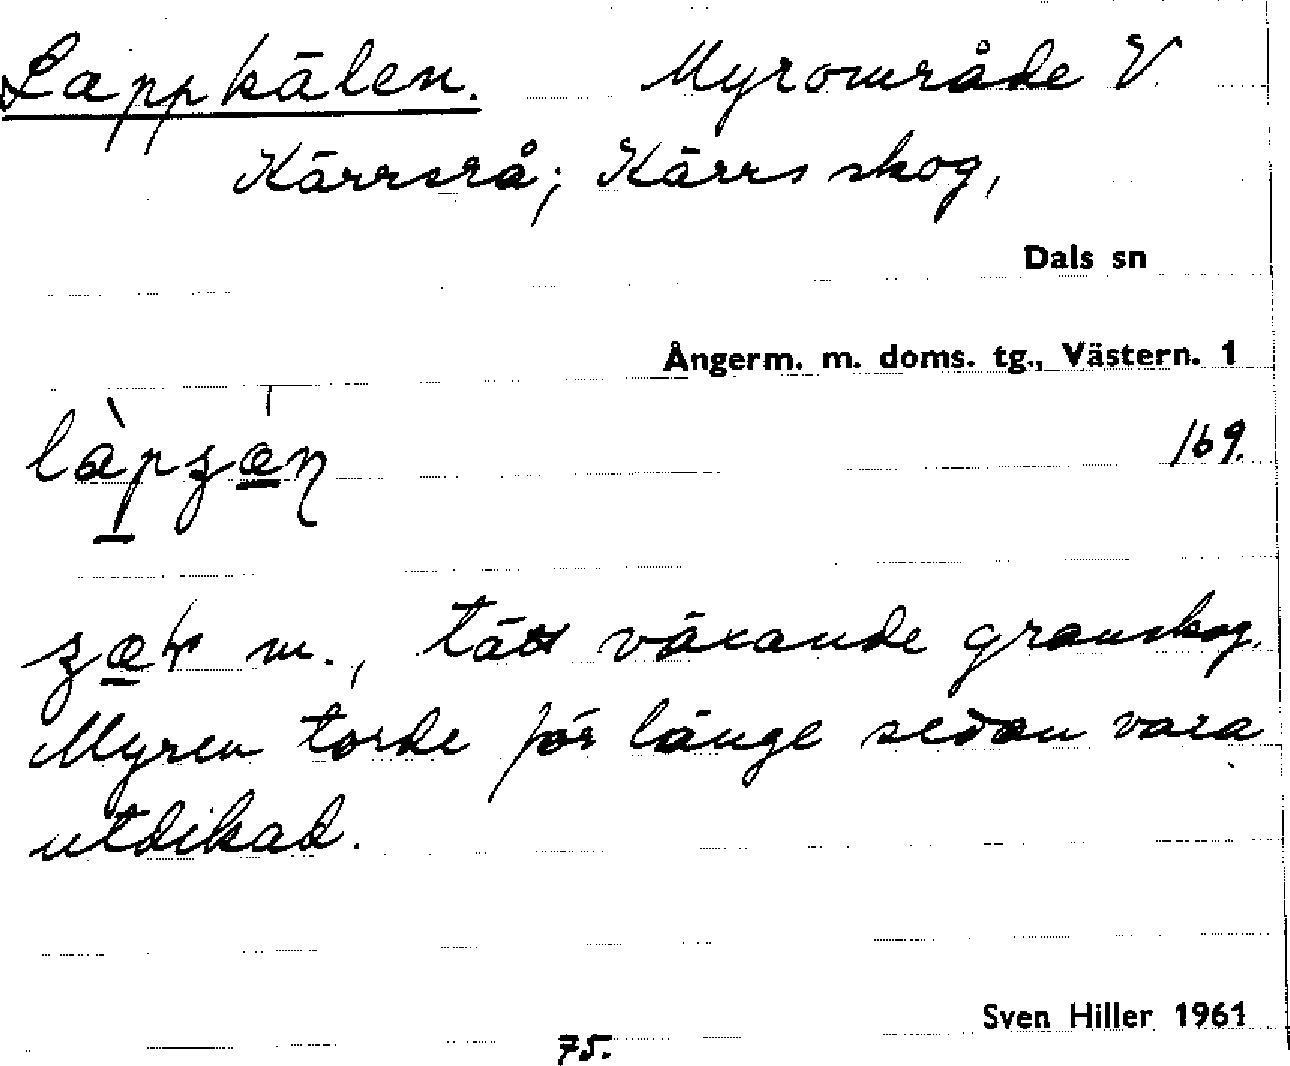 Lappkälen. Myrområde V.
Kärrsrå; Kärrs skog,
Dals sn
Ångerm. m. doms. tg., Västern. 1
169.
m., tätt växande granskog.
Myren torde för länge sedan vara
utdikad.
Sven Hiller 1961
75.